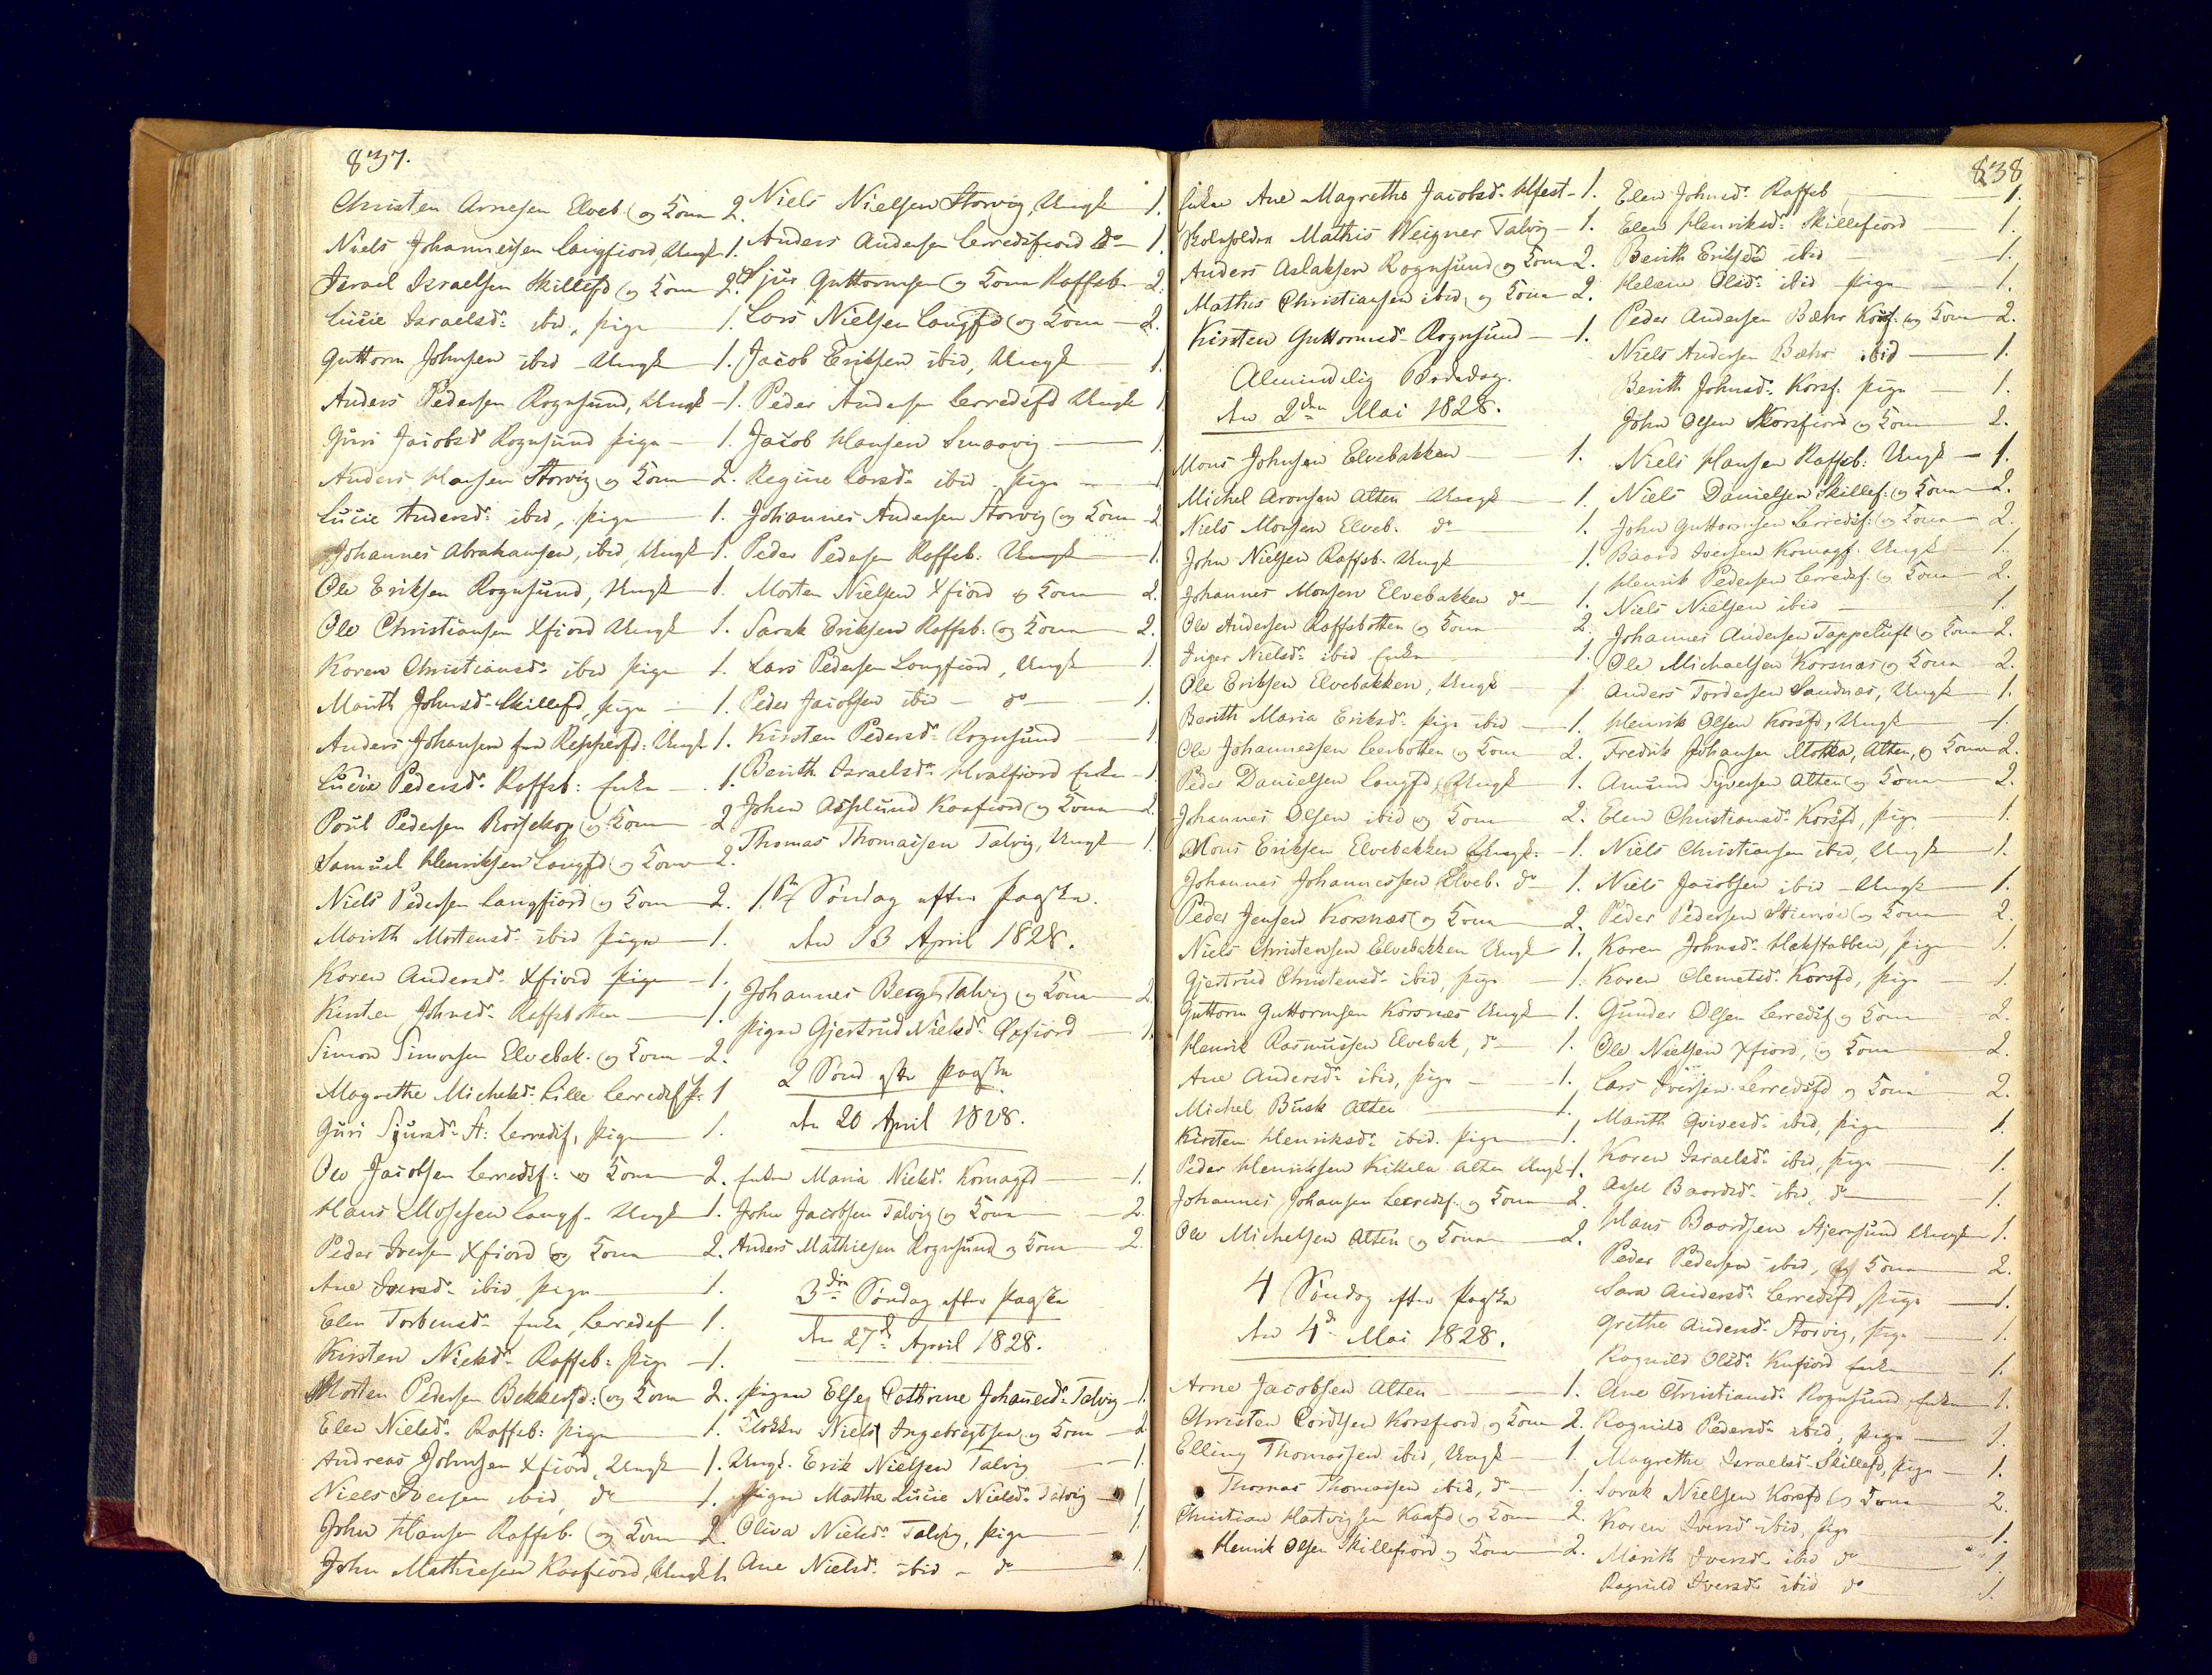 837.
Christen Arnesen Elveb og Kone 2.
Niels Johannessen Langfiord, Ungk 1.
Israel Israelsen Skillefd og Kone 2.
Lucie Israelsdr ibid, pige 1.
Guttorm Johnsen ibid Ungk 1.
Anders Pedersen Rognsund, Ungk 1.
Guri Jacobsd Rognsund pige 1.
Anders Hansen Storvig og Kone 2.
Lucie Andersdr ibid, pige 1.
Johannes Abrahamsen, ibid, Ungk 1.
Ole Eriksen Rognsund, Ungk 1.
Ole Christiansen Xfiord Ungk 1.
Karen Christiansdr ibid pige 1.
Marith Johnsdr Skillefd, pige 1.
Anders Johansen fra Repperfd: Ungk 1.
Lucie Pedersdr Raffsb: Enke 1.
Poul Pedersen Bossekop og Kone 2
Samuel Henriksen Langfd og Kone 2.
Niels Pedersen Langfiord og Kone 2.
Marith Mortensdr ibid pige 1.
Karen Andersdr Xfiord pige 1.
Kirsten Johnsdr Raffsbotten 1.
Simon Simonsen Elvebak. og Kone 2.
Magrethe Michelsdr Lille Lerredsf p: 1
Guri Sjursdr St: Lerredsf, pige 1.
Ole Jacobsen Lerredsf: og Kone 2.
Hans Mosesen Langf. Ungk 1.
Peder Iversen Xfiord og Kone 2.
Ane Iversdr ibid, pige 1.
Elen Torbensdr Enke, Lerredsf 1.
Kirsten Nielsdr Raffsb: pige 1.
Morten Pedersen Bekkerfd: og Kone 2.
Elen Nielsdr Raffsb: pige 1.
Andreas Johnsen Xfiord, Ungk 1.
Niels Iversen ibid, do 1.
John Hansen Raffsb. og Kone 2.
John Mathiesen Kaafiord, Ungk 1.
Niels Nielsen Storvig, Ungk 1.
Anders Andersen Lerredsfiord do 1.
Sjur Guttormsen og Kone Raffsb. 2.
Lars Nielsen Langfd og Kone 2.
Jacob Eriksen ibid, Ungk 1.
Peder Andersen Lerredsfd Ungk 1
Jacob Hansen Smaavig 1.
Regine Larsdr ibid pige 1
Johannes Andersen Storvig og Kone 2
Peder Pedersen Raffsb: Ungk 1.
Morten Nielsen Xfiord og Kone 2.
Sarak Eriksen Raffsb: og Kone 2.
Lars Pedersen Langfiord, Ungk 1.
Peder Jacobsen ibid do 1.
Kirsten Pedersdr Rognsund 1
Berith Israelsdr Hvalfiord Enke 1.
John Asplund Kaafiord og Kone 2.
Thomas Thomassen Talvig, Ungk 1.
1ste Søndag efter Paaske.
den 13 April 1828.
Johannes Berg Talvig og Kone 2.
Pigen Gjertrud Nielsdr Oxfiord 1.
2 Sönd efter Paaske
den 20 April 1828.
Enken Maria Nielsdr Komagfd 1.
John Jacobsen Talvig og Kone 2
Anders Mathiesen Rognsund og Kone 2
3die Søndag efter Paaske
den 27de April 1828.
Pigen Elsej Cathrine Johanesdr Talvig 1.
Klokker Niels Ingebregtsen og Kone 2
Ungk. Erik Nielsen Talvig 1.
Pigen Marthe Lucie Nielsdr Talvig 1
Oliva Nielsdr Talvig, pige 1.
Ane Nielsdr ibid do 1.
838
Enken Ane Magrethe Jacobsdr 1.
Mathis Weigner Talvig 1.
Anders Aslaksen Rognsund og Kone 2.
Mathis Christiansen ibid, og Kone 2.
Kirsten Guttormsdr Rognsund 1.
Almindelig Bededag.
den 2den Mai 1828.
Mons Johnsen Elvebakken 1.
Michel Aronsen Alten Ungk 1.
Niels Monsen Elveb. do 1.
John Nielsen Raffsb. Ungk 1.
Johannes Monsen Elvebakken do 1.
Ole Andersen Raffsbotten og Kone 2.
Inger Nielsdr ibid Enke 1.
Ole Eriksen Elvebakken, Ungk 1
Berith Maria Eriksdr pige ibid 1.
Ole Johannessen Leerbotten og Kone 2.
Peder Danielsen Langfd, Ungk 1.
Johannes Olsen ibid og Kone 2.
Mons Eriksen Elvebakken Ungk. 1.
Johannes Johannessen Elveb. do 1.
Peder Jensen Korsnæs og Kone 2.
Niels Christensen Elvebakken Ungk 1.
Gjertrud Christensdr ibid, pige 1.
Guttorm Guttormsen Korsnæs Ungk 1.
Henrik Rasmussen Elvebak, do 1.
Ane Andersdr ibid, pige 1.
Michel Busk Alten 1.
Kirsten Henriksdr ibid. pige 1.
Peder Henriksen Kittela Alten Ungk 1.
Johannes Johansen Lerredsf. og Kone 2.
Ole Michelsen Alten og Kone 2.
4 Søndag efter Paaske
den 4de Mai 1828.
Arne Jacobsen Alten 1.
Christen Cordtsen Korsfiord og Kone 2.
Elling Thomassen ibid, Ungk 1.
Thomas Thomassen ibid, do 1.
Christian Hartvigsen Kaafd og Kone 2.
Henrik Olsen Skillefiord og Kone 2.
Elen Johnsdr Raffsb 1.
Elen Henriksdr Skillefiord 1.
Berith Eriksdr ibid 1.
Helene Olsdr ibid pige 1.
Peder Andersen Bæhr Korsf. og Kone 2.
Niels Andersen Bæhr ibid 1.
Berith Johnsdr Korsf. pige 1.
John Olsen Korsfiord og Kone 2.
Niels Hansen Raffsb: Ungk 1.
Niels Danielsen Skillef: og Kone 2.
John Guttormsen Lerredsf: og Kone 2.
Baard Iversen Komagf. Ungk 1.
Henrik Pedersen Lerredsf. og Kone 2.
Niels Nielsen ibid 1.
Johannes Andersen Tappeluft og Kone 2.
Ole Michaelsen Korsnæs og Kone 2.
Anders Tordersen Sandnæs, Ungk 1.
Henrik Olsen Korsfd, Ungk 1.
Fredrik Johansen Motka, Alten, og Kone 2.
Amund Syversen Alten og Kone 2.
Elen Christiansdr Korsfd, pige 1.
Niels Christiansen ibid, Ungk 1.
Niels Jacobsen ibid Ungk 1.
Peder Pedersen Stiernöe og Kone 2.
Karen Johnsdr Hakstabben, pige 1.
Karen Clemetsdr Korsfd, pige 1.
Gunder Olsen Lerredsf og Kone 2.
Ole Nielsen Xfiord, og Kone 2.
Lars Iversen Lerredsfd og Kone 2.
Marith Qvivesdr ibid, pige 1.
Karen Israelsdr ibid, pige 1.
Assel Baardsdr ibid, do 1.
Hans Baardsen Stjernsund Ungk 1.
Peder Pedersen ibid, og Kone 2.
Sara Andersdr Lerredsfd, pige 1.
Grethe Andersdr Storvig, pige 1.
Ragnild Olsdr Kufiord Enke 1.
Ane Christiansdr Rognsund, Enke 1.
Ragnild Pedersdr ibid, pige 1.
Magrethe Israelsdr Skillefd, pige 1.
Sarak Nielsen Korsfd og Kone 2.
Karen Iversdr ibid, pige 1.
Marith Iversdr ibid do 1.
Ragnild Iversdr ibid do 1.